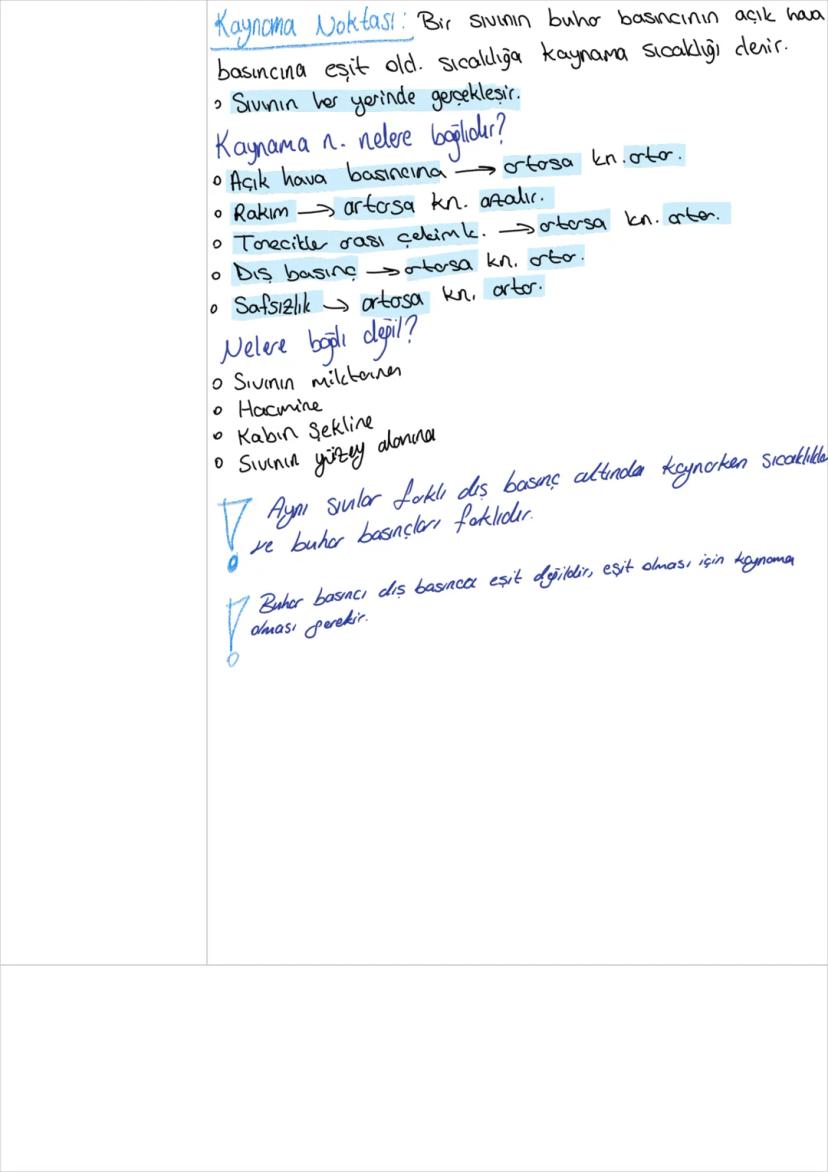 Kaynama Noktası: Bir sıvının buhar basıncının açık hava
basıncına eşit old. sıcaklığa kaynama sıcaklığı denir.
Sıvının her yerinde gerçekleşir.
Kaynama n. nelere bağlıdır?
Açık hava basıncına → artarsa kn. artar.
Rakım → artarsa kn. azalır.
Tanecikler arası çekim k. → artarsa kn. artar.
Dış basınç → artarsa kn. artar.
Safsızlık → artarsa kn. artar.
Nelere bağlı değil?
Sıvının miktarına
Hacmine
Kabın Şekline
Sıvının yüzey alanına
! Aynı sıvılar farklı dış basınç altında kaynarken sıcaklıkla
ve buhar basınçları farklıdır.
! Buhar basıncı dış basınca eşit değildir, eşit olması için kaynama
olması gerekir.